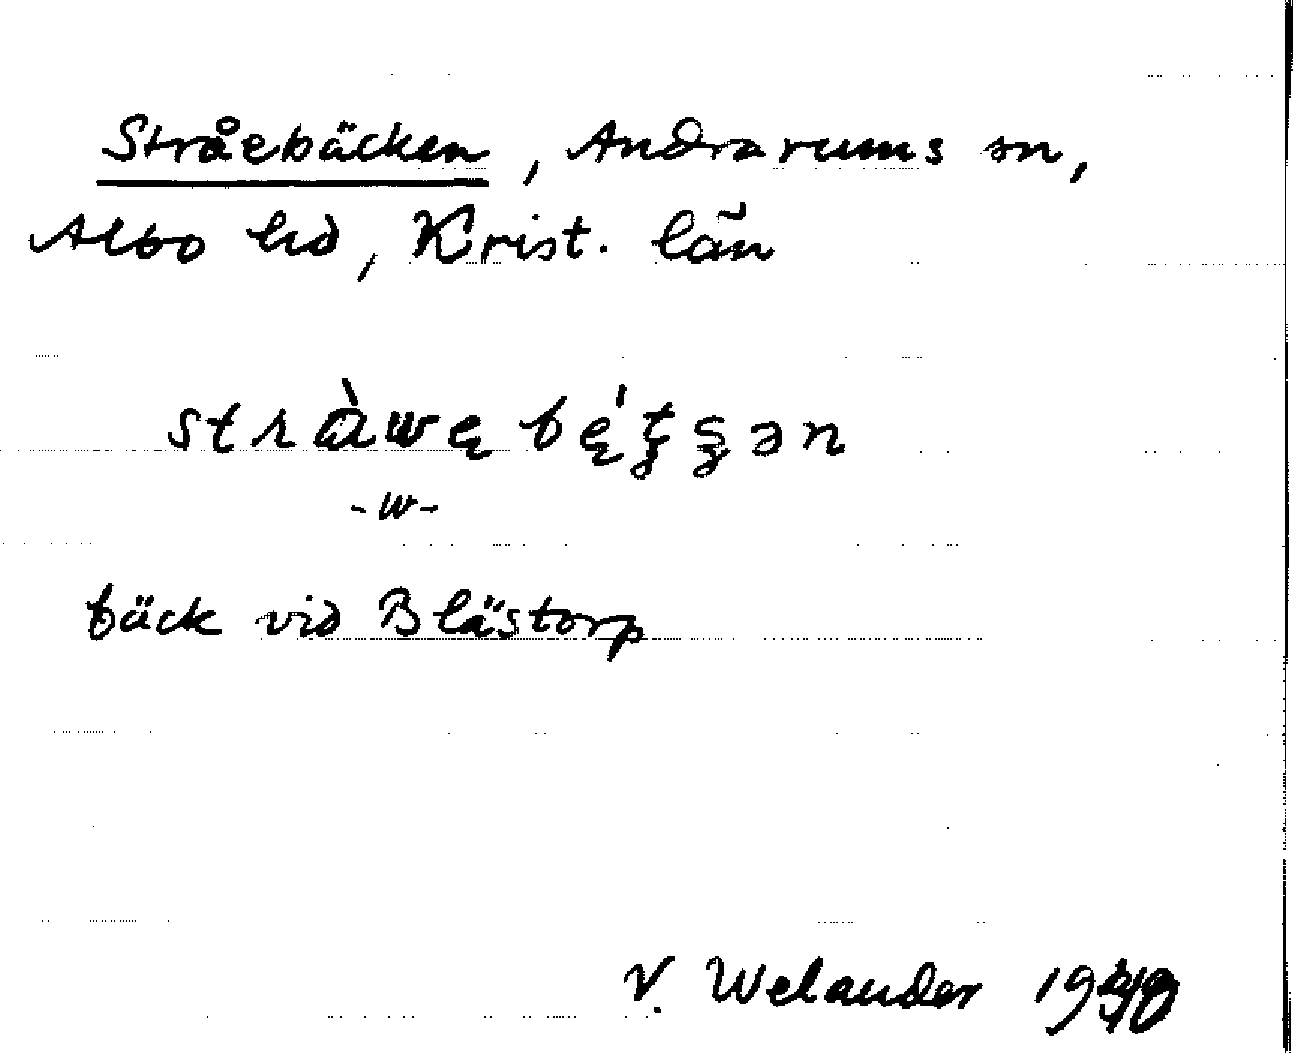 Stråebäcken, Andrarums sn,
Albo hd, Krist. län
stràwę bę́ţşən
-w-
bäck vid Blästorp
V. Welander